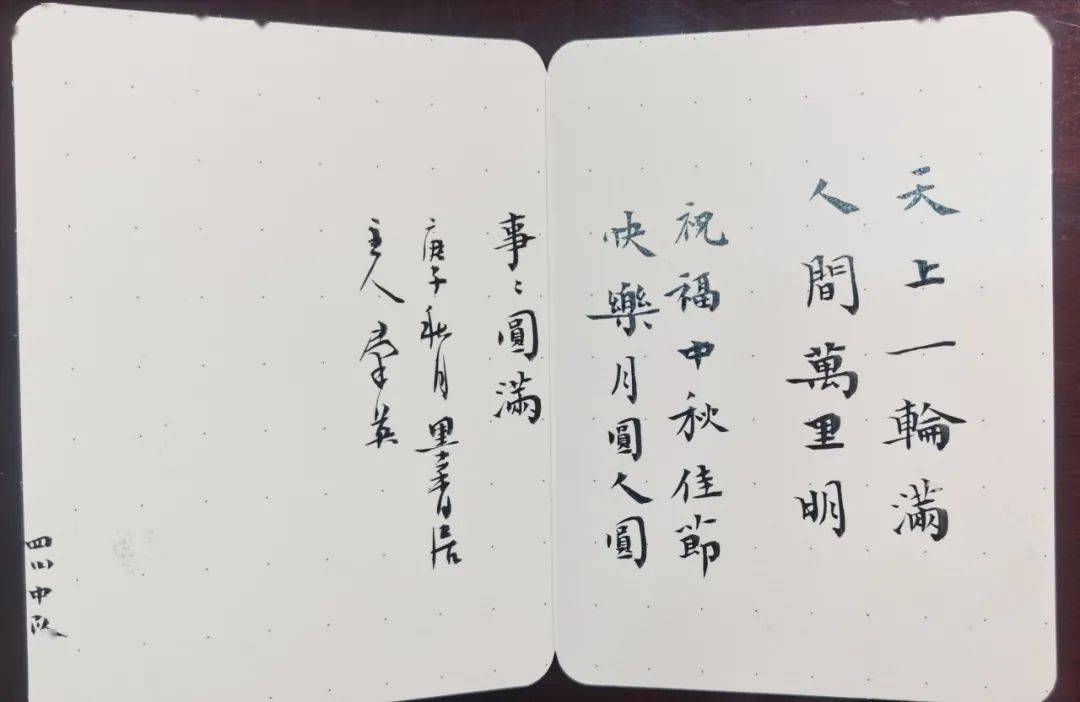 天上一輪滿
人間萬里明
祝福中秋佳節
快樂月圓人圓
事〻圓滿
庚子秋月墨書居
主人 英
四四中队